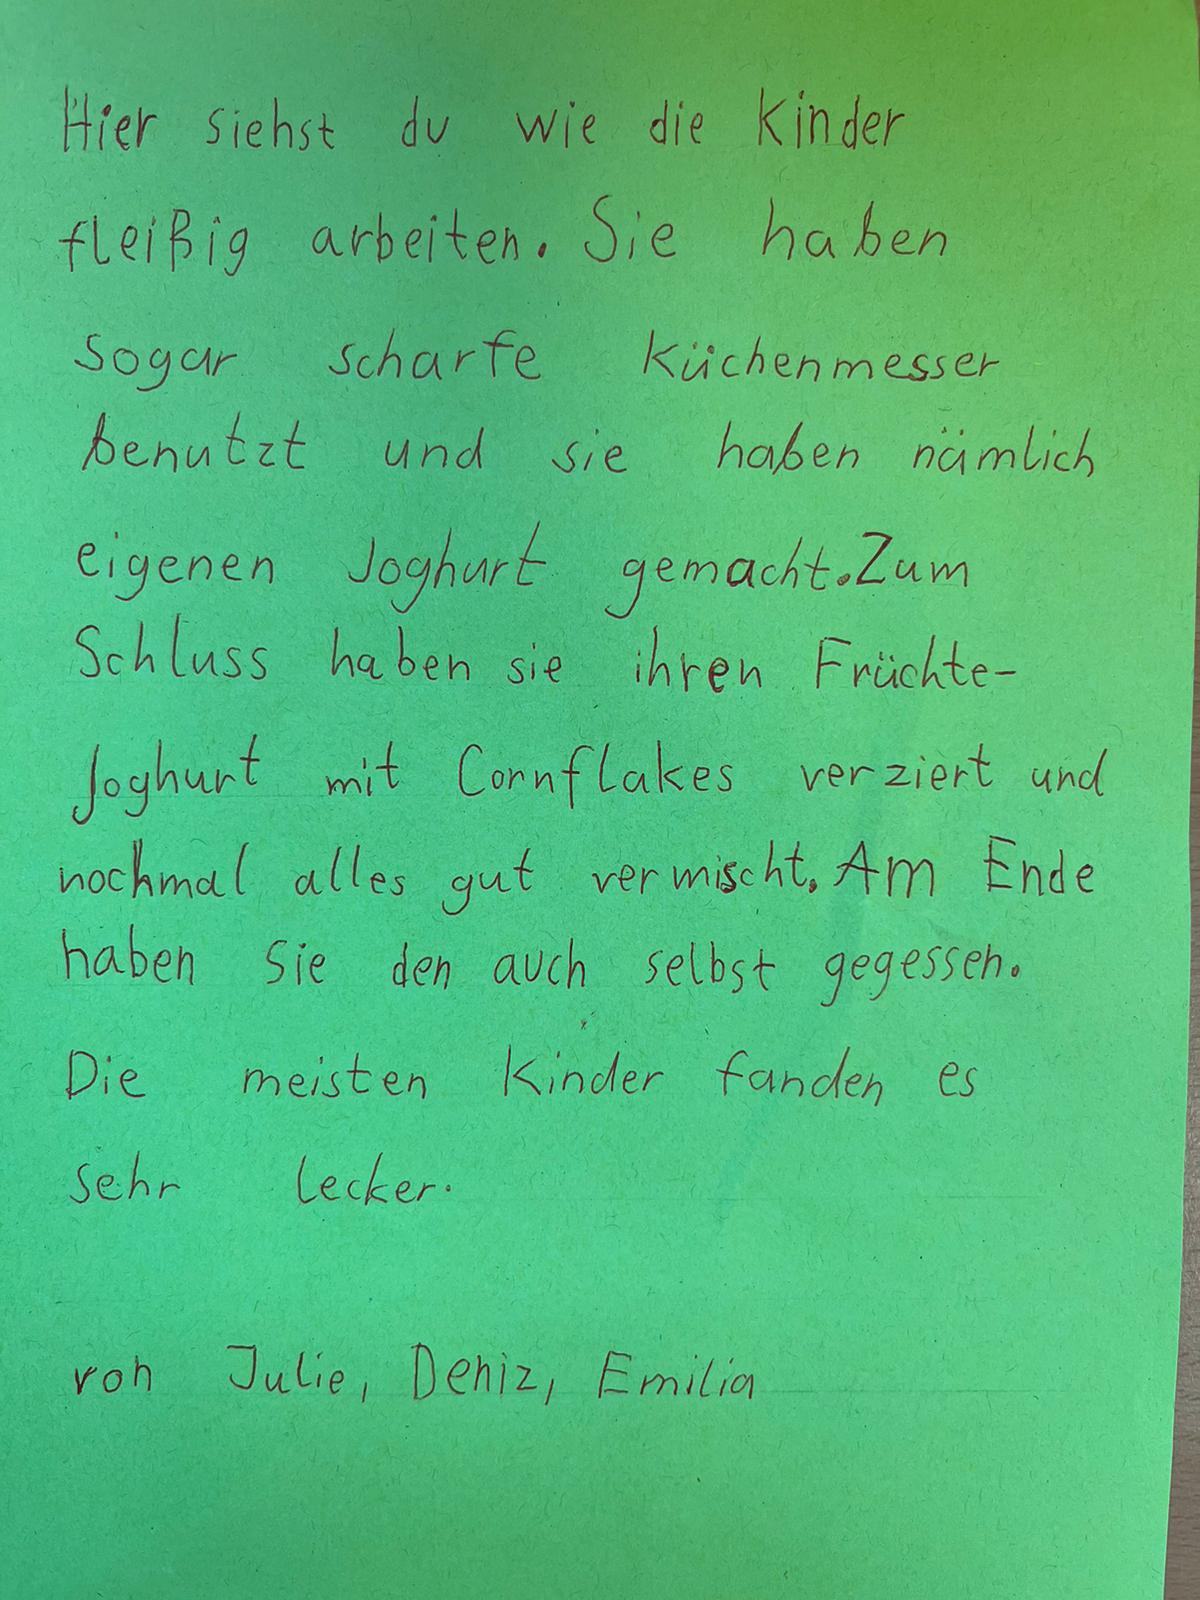 Hier siehst du wie die Kinder
fleißig arbeiten. Sie haben
sogar scharfe Küchenmesser
benutzt und sie haben nämlich
eigenen Joghurt gemacht. Zum
Schluss haben sie ihren Früchte-
Joghurt mit Cornflakes verziert und
nochmal alles gut vermischt. Am Ende
haben Sie den auch selbst gegessen.
Die meisten Kinder fanden es
sehr lecker.
von Julie, Deniz, Emilia